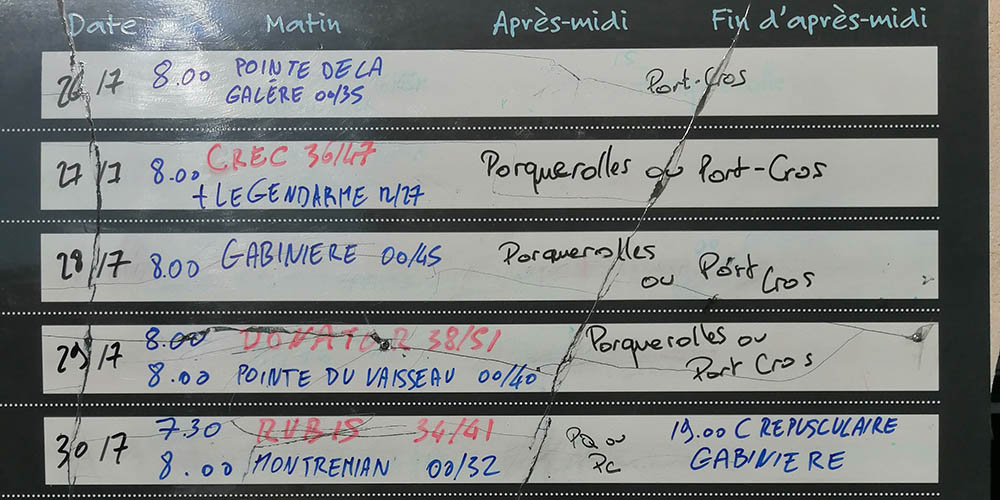 Date Matin Après-midi Fin d'après-midi
26/7 8.00 POINTE DE LA Port-Cros
GALÈRE 00/35
27/7 8.00 CREC 36/47 Porquerolles ou Port-Cros
+ LEGENDARME 12/27
28/7 8.00 GABINIERE 00/45 Porquerolles
ou Port Cros
29/7 8.00 DONATOR 38/51 Porquerolles ou
8.00 POINTE DU VAISSEAU 00/40 Port Cros
30/7 7.30 RUBIS 34/41 PQ ou 19.00 CREPUSCULAIRE
8.00 MONTREMIAN 00/32 PC GABINIERE